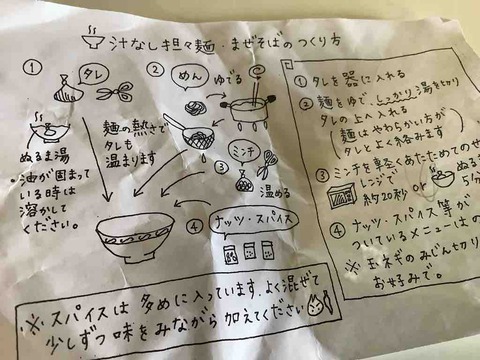 汁なし担々麺・まぜそばのつくり方
① タレ
ぬるま湯
・油が固まって
いる時は
溶かして
ください。
麺の熱さで
タレも
温まります
② めん ゆでる
③ ミンチ
温める
④ ナッツ・スパイス
※スパイスは多めに入っています。よく混ぜて
少しずつ味をみながら加えてください
① タレを器に入れる
② 麺をゆで、しっかり湯を切り
タレの上へ入れる
(麺はやわらかい方が
タレとよく絡みます)
③ ミンチを軽くあたためてのせ
レンジで
約20秒 or ぬるま
5分
④ ナッツ・スパイス等が
ついているメニューはの
※玉ネギのみじん切り
お好みで。